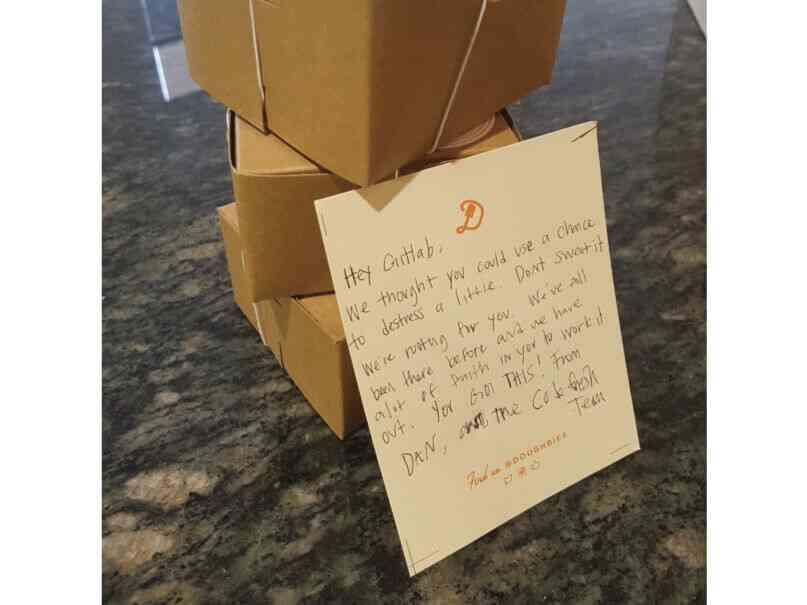 D
Hey GitLab,
We thought you could use a chance
to destress a little. Dont sweat it
We're rooting for you. We've all
been there before and we have
a lot of faith in you to work it
out. You GOT THIS! From
DAN, and the Codefresh
Team
Find us @DOUGHBIES